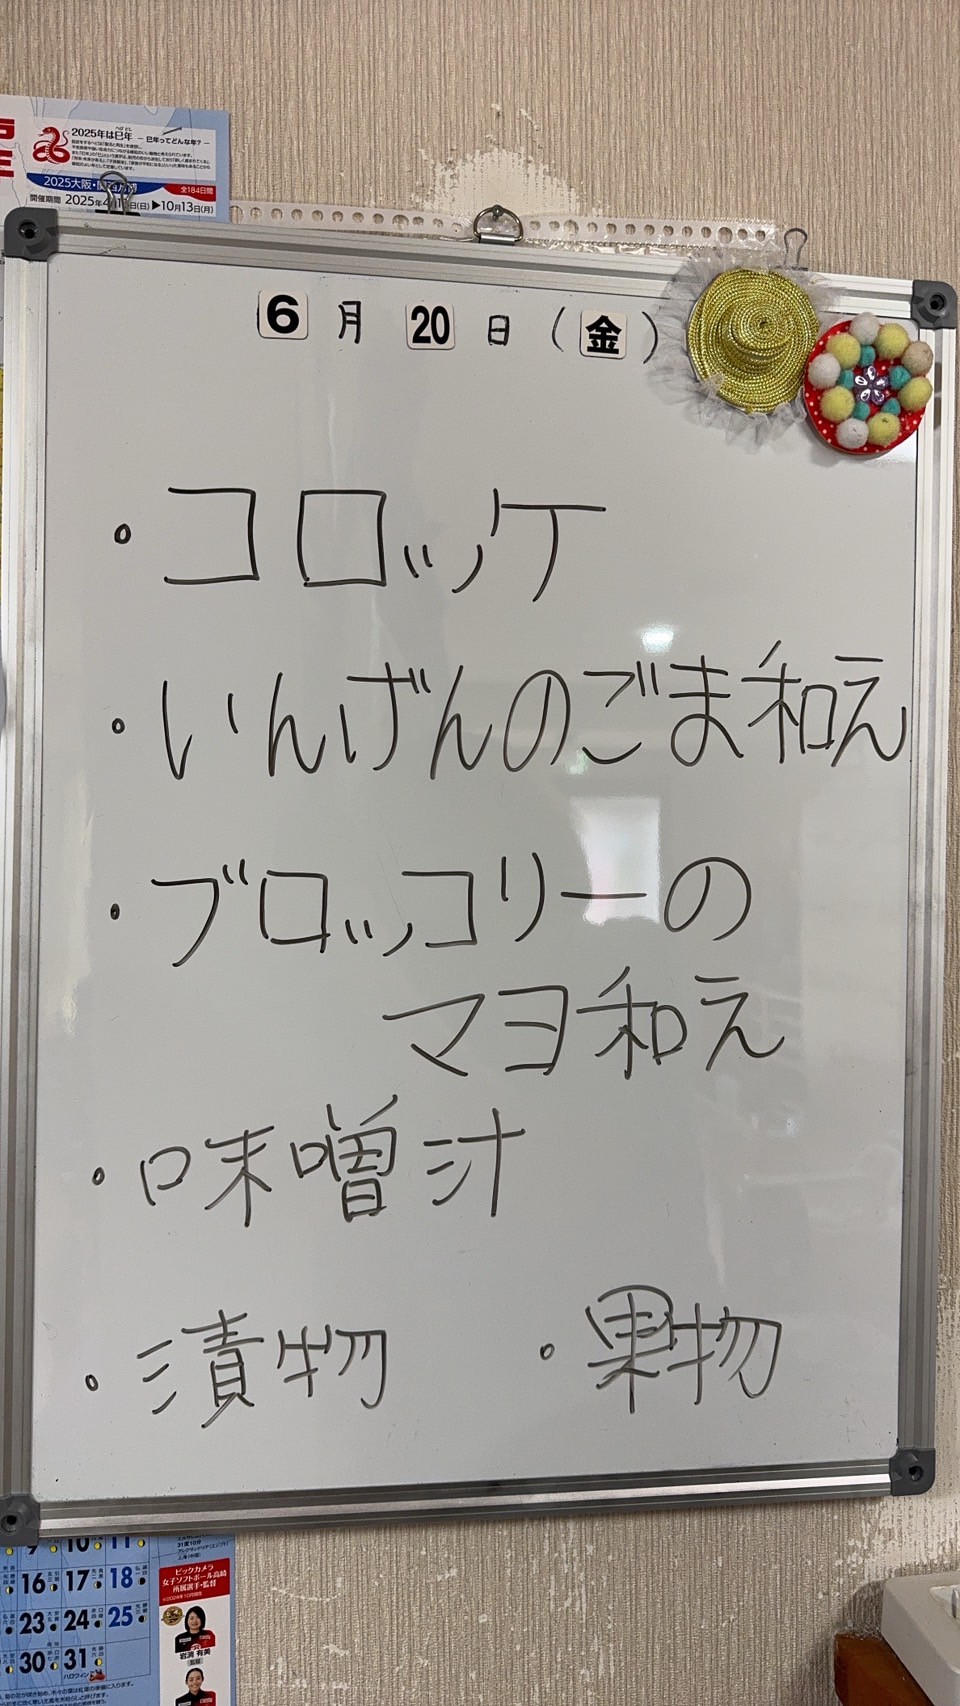 2025年は巳年 ー 巳年ってどんな年? ー
2025大阪・関西万博
全184日間
開催期間 2025年4月13日(日)▶10月13日(月)
6月20日(金)
・コロッケ
・いんげんのごま和え
・ブロッコリーの
マヨ和え
・味噌汁
・漬物 ・果物
9 10 11
16 17 18
23 24 25
30 31
ハロウィン
ビックカメラ
女子ソフトボール高崎
所属選手・監督
岩渕 有美